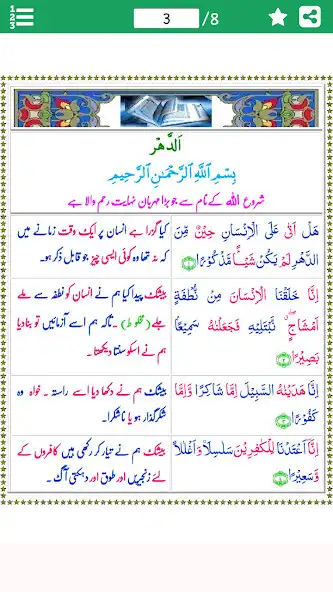 3 /8
اَلدَّهْر
بِسْمِ اللّٰهِ الرَّحْمٰنِ الرَّحِيْمِ
شروع اللہ کے نام سے جو بڑا مہربان نہایت رحم والا ہے
هَلْ اَتٰى عَلَى الْاِنْسَانِ حِيْنٌ مِّنَ
الدَّهْرِ لَمْ يَكُنْ شَيْـًٔا مَّذْكُوْرًا ۝۱
کیا گزرا ہے انسان پر ایک وقت زمانے میں
کہ نہ تھا وہ کوئی ایسی چیز جو قابل ذکر ہو۔
اِنَّا خَلَقْنَا الْاِنْسَانَ مِنْ نُّطْفَةٍ
اَمْشَاجٍ ۖ نَّبْتَلِيْهِ فَجَعَلْنٰهُ سَمِيْعًا
بَصِيْرًا ۝۲
بیشک پیدا کیا ہم نے انسان کو نطفہ سے ملے
جلے (مخلوط) ۔ تاکہ ہم اسے آزمائیں تو بنادیا
ہم نے اسکو سنتا دیکھتا۔
اِنَّا هَدَيْنٰهُ السَّبِيْلَ اِمَّا شَاكِرًا وَّاِمَّا
كَفُوْرًا ۝۳
بیشک ہم نے دکھا دیا اسے راستہ ۔ خواہ وہ
شکرگذار ہو یا ناشکرا۔
اِنَّا اَعْتَدْنَا لِلْكٰفِرِيْنَ سَلٰسِلَا۟ وَاَغْلٰلًا
وَّسَعِيْرًا ۝۴
بیشک ہم نے تیار کر رکھی ہیں کافروں کے
لئے زنجیریں اور طوق اور دہکتی آگ ۔